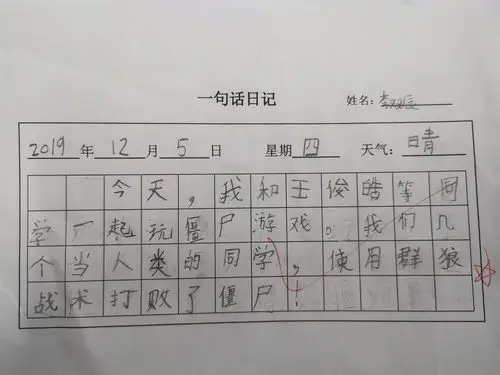 一句话日记
姓名:李
2019 年 12 月 5 日 星期 四 天气: 晴
今天,我和王俊皓等同
学一起玩僵尸游戏。我们几
个当人类的同学,使用群狼
战术打败了僵尸!